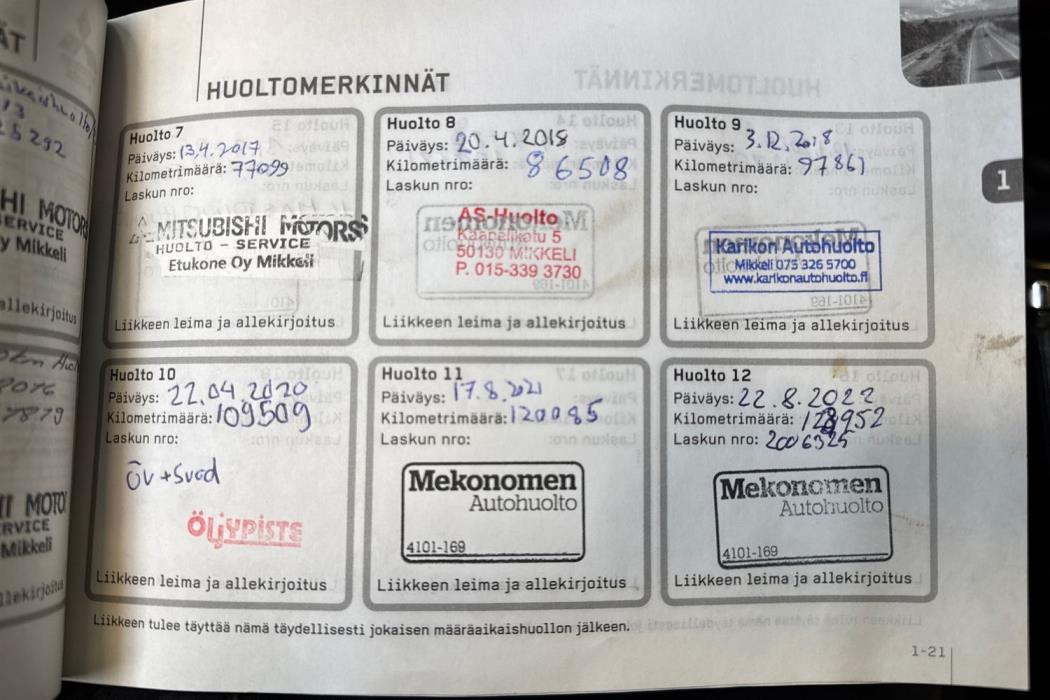 HUOLTOMERKINNÄT
Huolto 7
Päiväys: 13.4.2017
Kilometrimäärä: 77099
Laskun nro:
MITSUBISHI MOTORS
HUOLTO - SERVICE
Etukone Oy Mikkeli
Liikkeen leima ja allekirjoitus
Huolto 8
Päiväys: 20.4.2018
Kilometrimäärä: 86508
Laskun nro:
AS-Huolto
Kaapelikatu 5
50130 MIKKELI
P. 015-339 3730
Liikkeen leima ja allekirjoitus
Huolto 9
Päiväys: 3.12.2018
Kilometrimäärä: 97861
Laskun nro:
Karikon Autohuolto
Mikkeli 075 326 5700
www.karikonautohuolto.fi
Liikkeen leima ja allekirjoitus
Huolto 10
Päiväys: 22.04.2020
Kilometrimäärä: 109509
Laskun nro:
ÖV+Suod
ÖLJYPISTE
Liikkeen leima ja allekirjoitus
Huolto 11
Päiväys: 17.8.2021
Kilometrimäärä: 120085
Laskun nro:
Mekonomen
Autohuolto
4101-169
Liikkeen leima ja allekirjoitus
Huolto 12
Päiväys: 22.8.2022
Kilometrimäärä: 128952
Laskun nro: 2006325
Mekonomen
Autohuolto
4101-169
Liikkeen leima ja allekirjoitus
Liikkeen tulee täyttää nämä täydellisesti jokaisen määräaikaishuollon jälkeen.
1
1-21